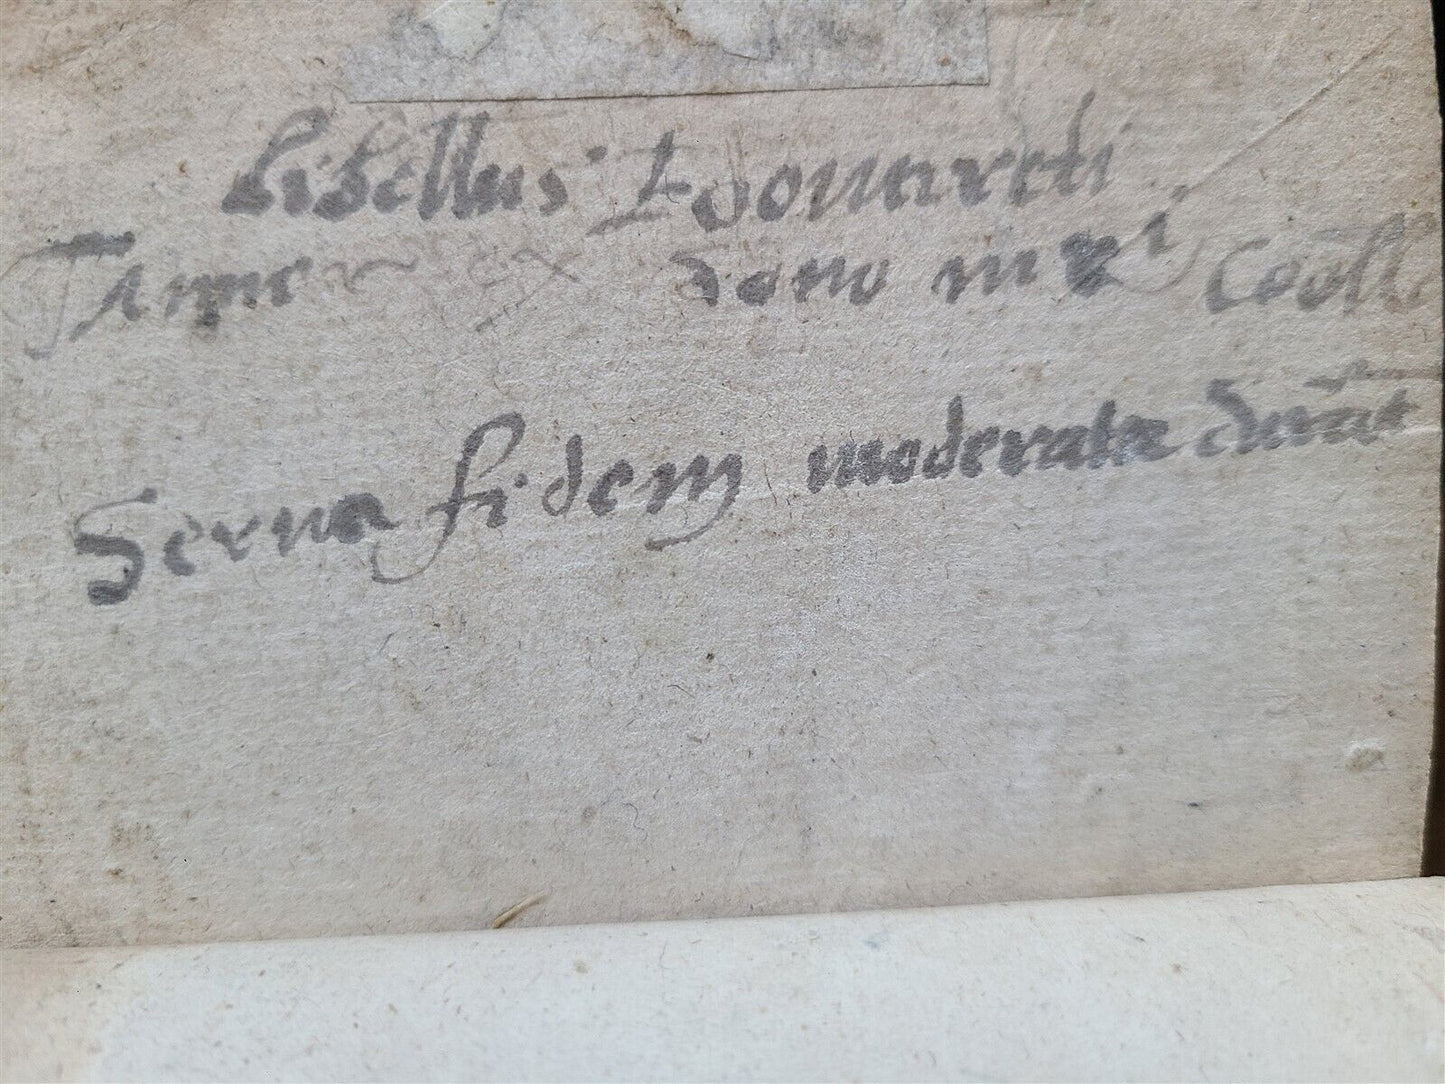 Libellus Leonardi
Tanner ex dono mri Cooll
Serua fidem moderata durãt